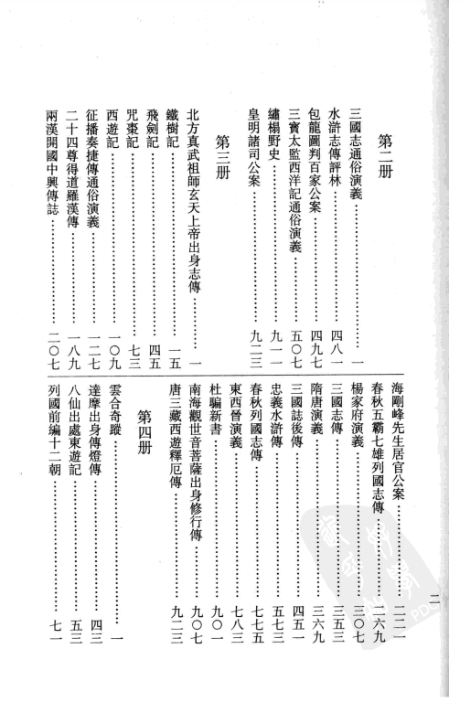 第二册
三國志通俗演義……一
水滸志傳評林……四八一
包龍圖判百家公案……四九七
三寶太監西洋記通俗演義……五〇七
繡榻野史……九一一
皇明諸司公案……九二三
第三册
北方真武祖師玄天上帝出身志傳……一
鐵樹記……一五
飛劍記……四五
咒棗記……七三
西遊記……一〇九
征播奏捷傳通俗演義……一二七
二十四尊得道羅漢傳……一八九
兩漢開國中興傳誌……二〇七
海剛峰先生居官公案……二二一
春秋五霸七雄列國志傳……二六九
楊家府演義……三〇七
三國志傳……三五三
隋唐演義……三六九
三國誌後傳……四五一
忠義水滸傳……五七三
春秋列國志傳……七七五
東西晉演義……七八三
杜騙新書……九〇一
南海觀世音菩薩出身修行傳……九〇七
唐三藏西遊釋厄傳……九二三
第四册
雲合奇蹤……一
達摩出身傳燈傳……四三
八仙出處東遊記……五三
列國前編十二朝……七一
二